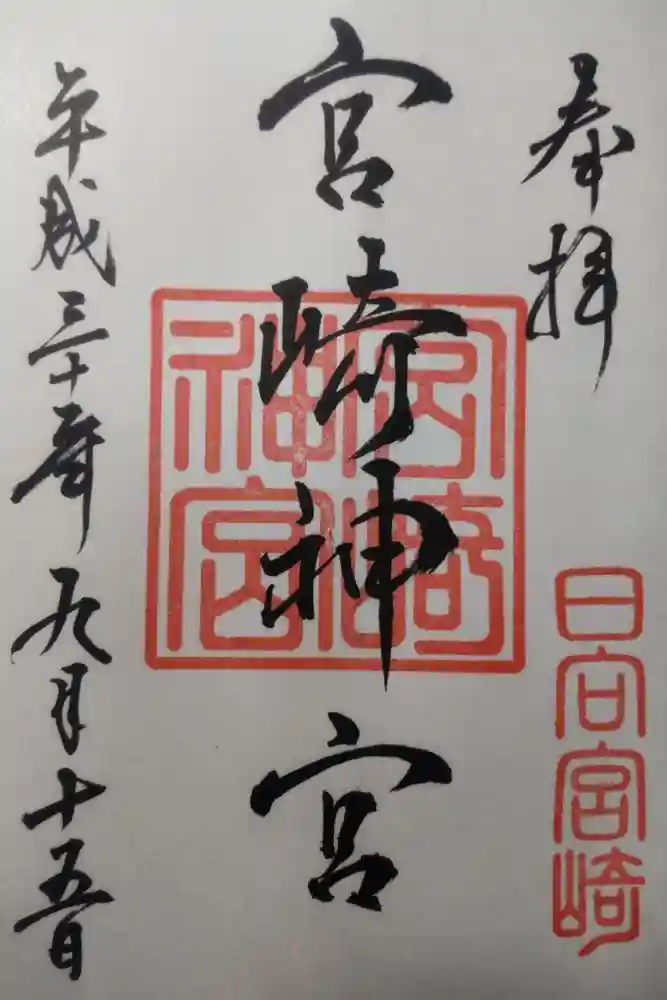 奉拝
日向宮崎
宮﨑神宮
宮崎
神宮
平成三十年九月十五日